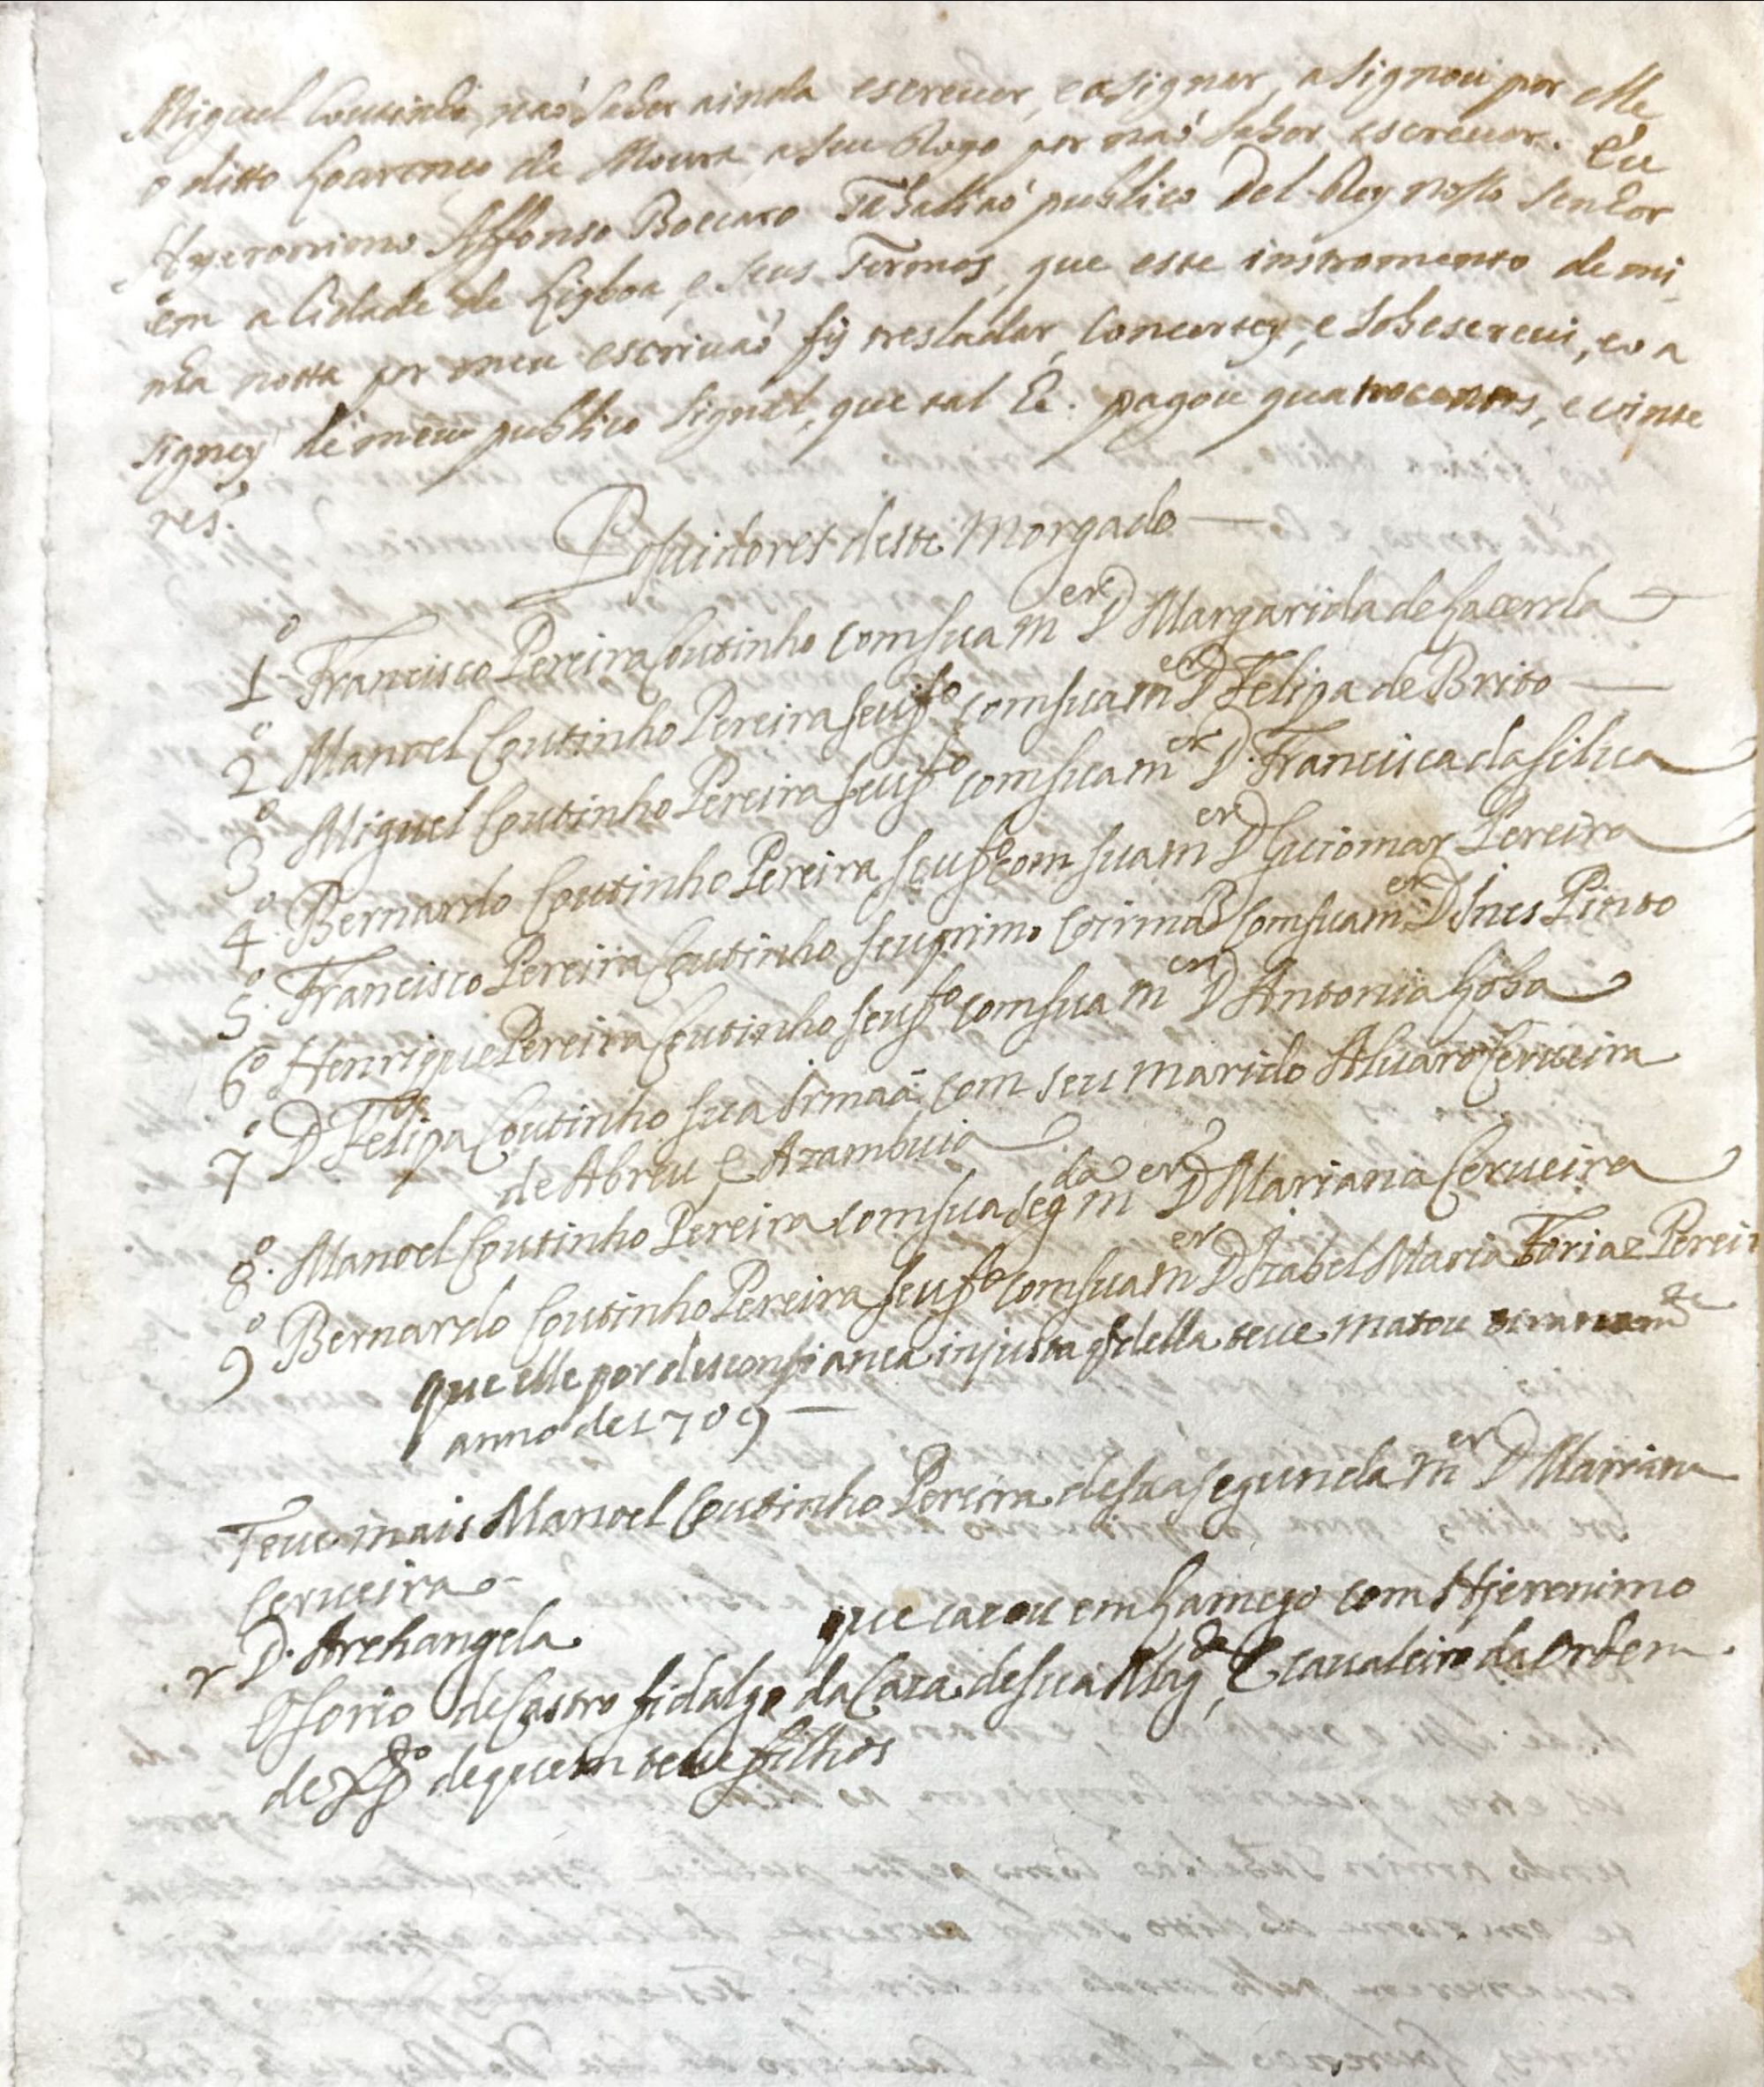 Miguel Coutinho, naó saber ainda escreuer, e asignar, asignou por elle
o ditto Lourenço de Moura a seu Rogo por naó saber escreuer. Eu
Hyeronimo Affonso Boccaro Tabaliaó publico Del Rey nosso Senhor
em a Cidade de Lixboa, e seus Termos, que este instromento de mi
nha notta por meu escriuaó fiz tresladar, concertey, e sobescreui, e o a
signey de meu publico signel, que tal hé. pagou quatrocentos, e vinte
res.
Posuidores deste Morgado
1º Francisco Pereira Coutinho com sua m.er D Margarida de Lacerda
2º Manoel Coutinho Pereira seu fº com sua m.er D Felipa de Brito
3º Miguel Coutinho Pereira seu fº com sua m.er D. Francisca da Silua
4º Bernardo Coutinho Pereira seu fº com sua m.er D Guiomar Pereira
5º Francisco Pereira Coutinho seu primo com sua m.er D Ines Pinto
6º Henrique Pereira Coutinho seu fº com sua m.er D Antonia Loba
7º D Felipa Coutinho sua Irmaã com seu marido Aluaro Cerueira
de Abreu e Azambuia
8º Manoel Coutinho Pereira com sua seg.da m.er D Mariana Cerueira
9º Bernardo Coutinho Pereira seu fº com sua m.er D Izabel Maria Foriaz Perei
que elle por desconfianca injusta q̃ della teue matou tiranam.te
anno de 1709
Teue mais Manoel Coutinho Pereira de sua segunda m.er D Marian̄a
Cerueira
r D. Archangela que cazou em Lamego com Hjeronimo
Osorio de Castro fidalgo da Caza de sua Mag.de, e caualeiro da ordem
de Xpº de quem teue filhos